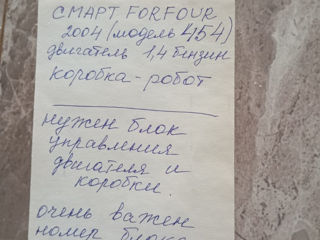 СМАРТ FORFOUR
2004 (модель 454)
двигатель 1,4 бензин
коробка - робот
нужен блок
управления
двигателя и
коробки.
очень важен
номер блока